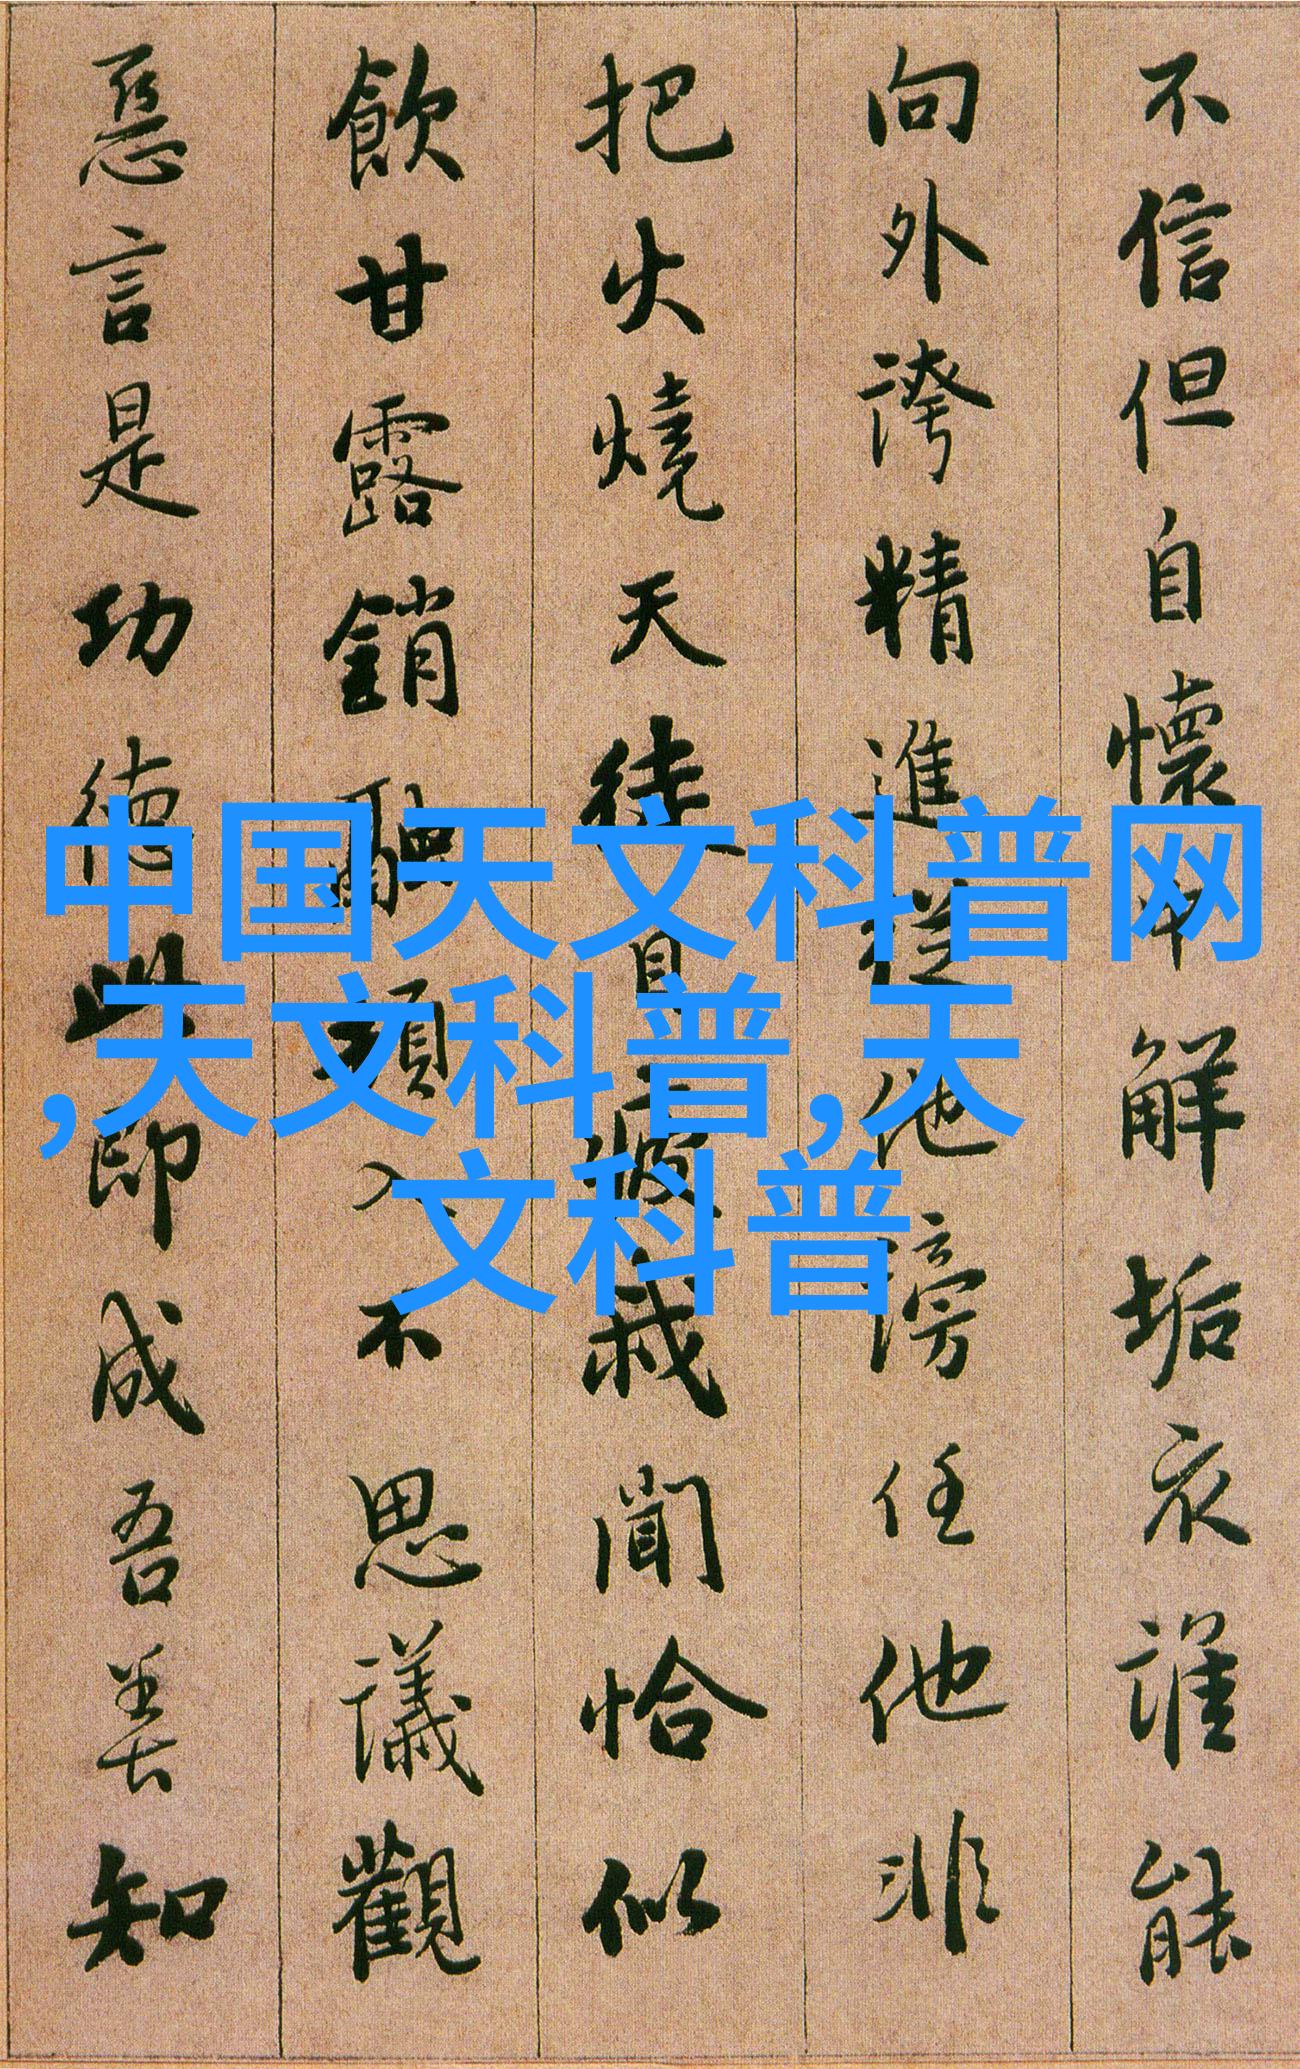 不信但自懷中解垢衣誰能
向外誇精進從他謗任他非
把火燒天徒自疲我聞恰似
飲甘露銷融頓入不思議觀
惡言是功德此即成吾善知
中国天文科普网
,天文科普,天
文科普